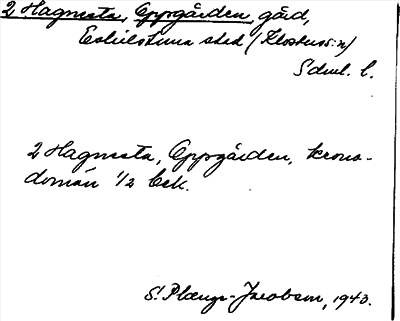 2 Hagnesta, Oppgården, gård,
Eskilstuna stad (Klosters sn)
Sdml. l.
2 Hagnesta, Oppgården, krono-
domän 1/2 bek.
S. Plænge-Jacobson, 1943.